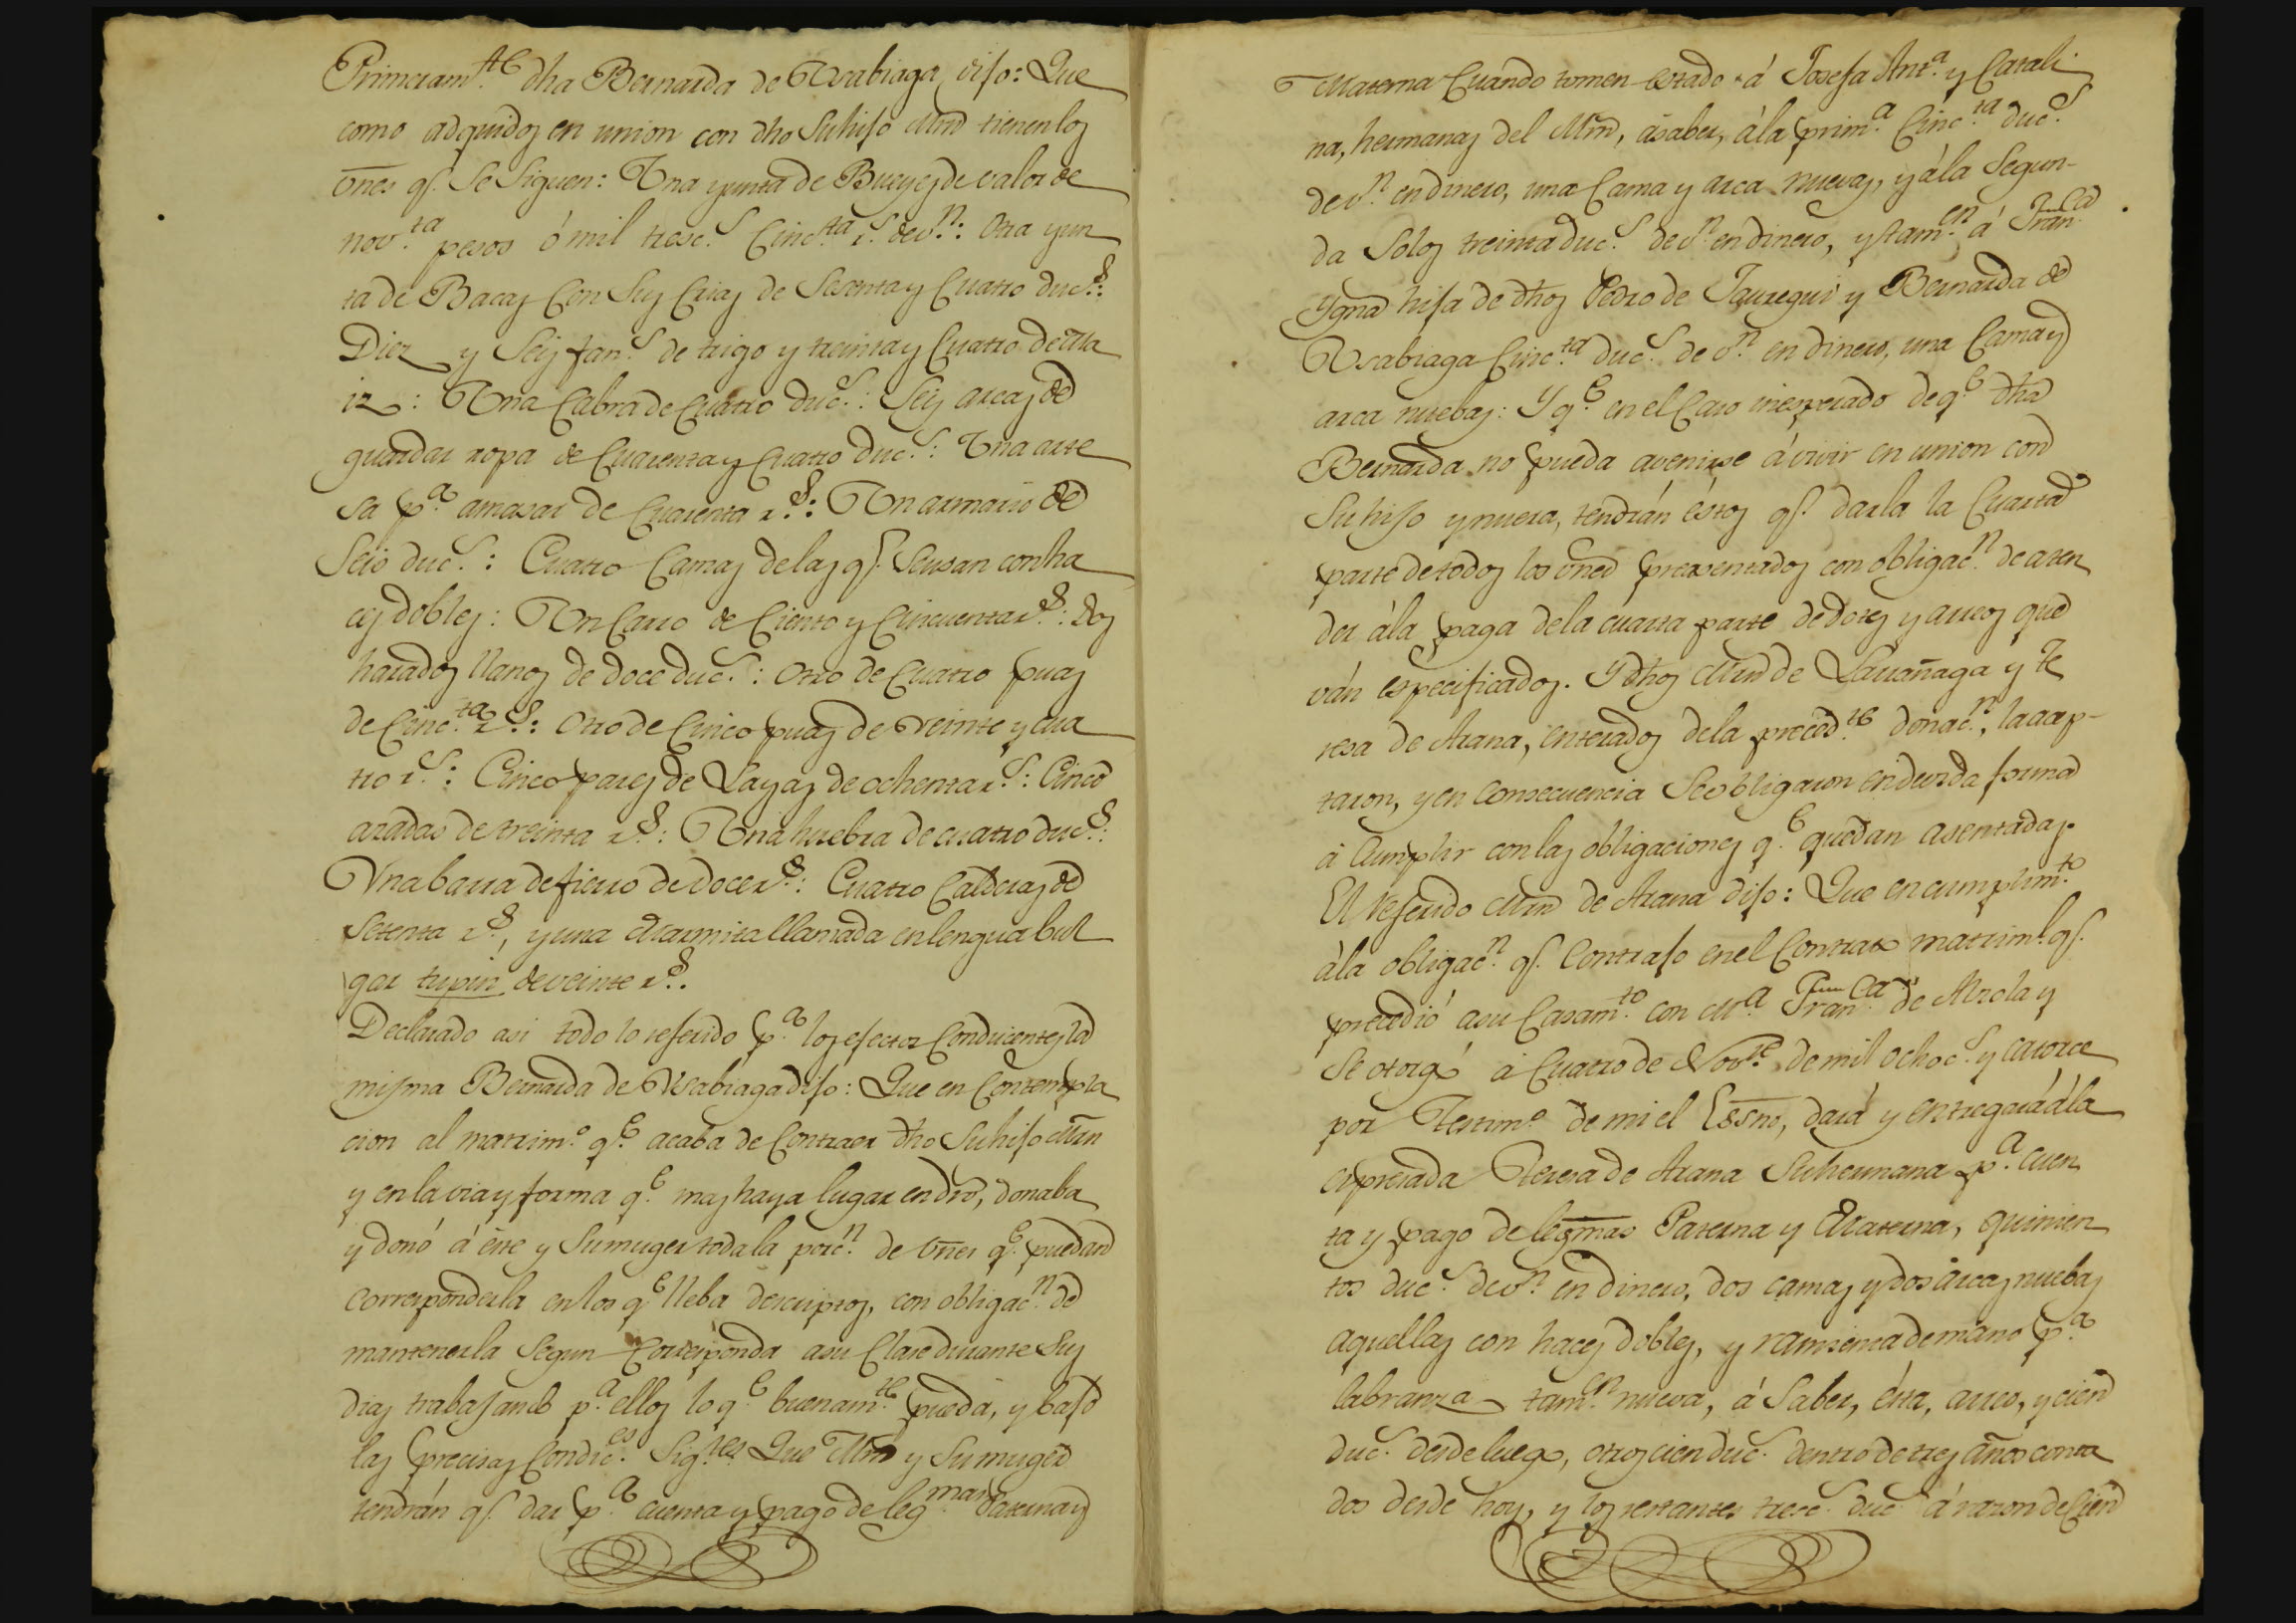 Primeram.te dha Bernarda de Vsabiaga dijo: Que
como adquidos en union con dho Su hijo Mrn tienen los
vnes q.e Se Siguen: Vna yunta de Bueyes de valor de
nov.ta pesos ó mil tresc.s Cinc.ta r.s de v.n: Otra yun
ta de Bacas Con Sus Crias de Sesenta y Cuatro duc.s:
Diez y Seis fan.s de trigo y treinta y Cuatro de Ma
iz: Vna Cabra de Cuatro duc.s: Seis arcas de
guardar ropa de Cuarenta y Cuatro duc.s: Vna arte
sa p.a amasar de Cuarenta r.s: Vn armario de
Seis duc.s: Cuatro Camas de las q.e Se usan con ha
ces dobles: Vn Carro de Ciento y Cincuenta r.s: Dos
harados llanos de doce duc.s: Otro de Cuatro puas
de Cinc.ta r.s: Otro de Cinco puas de veinte y cua
tro r.s: Cinco pares de Layas de ochenta r.s: Cinco
azadas de treinta r.s: Vna huebra de cuatro duc.s:
Vna barra de fierro de doce r.s: Cuatro Calderas de
Setenta r.s, y una Marmita llamada en lengua bul
gar tupin de veinte r.s.
Declarado asi todo lo referido p.a los efectos Conducentes la
misma Bernarda de Vsabiaga dijo: Que en Contempla
cion al matrim.o q.e acaba de Contraer dho Su hijo Mrn
y en la via y forma q.e mas haya lugar en dro, donaba
y donó á éste y Su muger toda la porc.n de vnes q.e puedan
corresponderla en los q.e lleba descriptos, con obligac.n de
mantenerla Segun Corresponda a su Clase durante Sus
dias trabajando p.a ellos lo q.e buenam.te pueda, y bajo
las precisas Condic.es Sig.tes Que Mrn y Su muger
tendrán q.e dar p.a cuenta y pago de leg.mas Paterna y
Materna Cuando tomen estado á Josefa Ant.a y Catali
na, hermanas del Mrn, á saber, á la prim.a Cinc.ta duc.s
de v.n en dinero, una Cama y arca nuevas, y á la Segun-
da Solos treinta duc.s de v.n en dinero, y tam.en á Fran.ca
Ygna hija de dhos Pedro de Jauregui y Bernarda de
Vsabiaga Cinc.ta duc.s de v.n en dinero, una Cama y
arca nuebas: Y q.e en el Caso inesperado de q.e dha
Bernarda no pueda avenirse á vivir en union con
Su hijo y nuera, tendrán éstos q.e darla la Cuarta
parte de todos los vnes presentados con obligac.n de aten
der á la paga de la cuarta parte de dotes y arreos que
ván especificados. Y dhos Mrn de Larrañaga y Te
resa de Arana, enterados de la preced.te donac.n, la acep-
taron, y en consecuencia Se obligaron en devida forma
á Cumplir con las obligaciones q.e quedan asentadas.
El referido Mrn de Arana dijo: Que en cumplim.to
á la obligac.n q.e Contrajo en el Contrato matrim.l q.e
precedió a su Casam.to con M.a Fran.ca de Alzola y
Se otorgó á Cuatro de Nov.re de mil ochoc.s y catorce
por Testim.o de mi el Essno, dará y entregará á la
expresada Teresa de Arana Su hermana p.a cuen
ta y pago de legmas Paterna y Materna, quinien
tos duc.s de v.n en dinero, dos camas y dos arcas nuebas
aquellas con haces dobles, y ramienta de mano p.a
labranza tam.en nueva, á Saber, ésta, arreo, y cien
duc.s desde luego, otros cien duc.s dentro de tres años conta
dos desde hoy, y los restantes tresc.s duc.s á razon de Cien